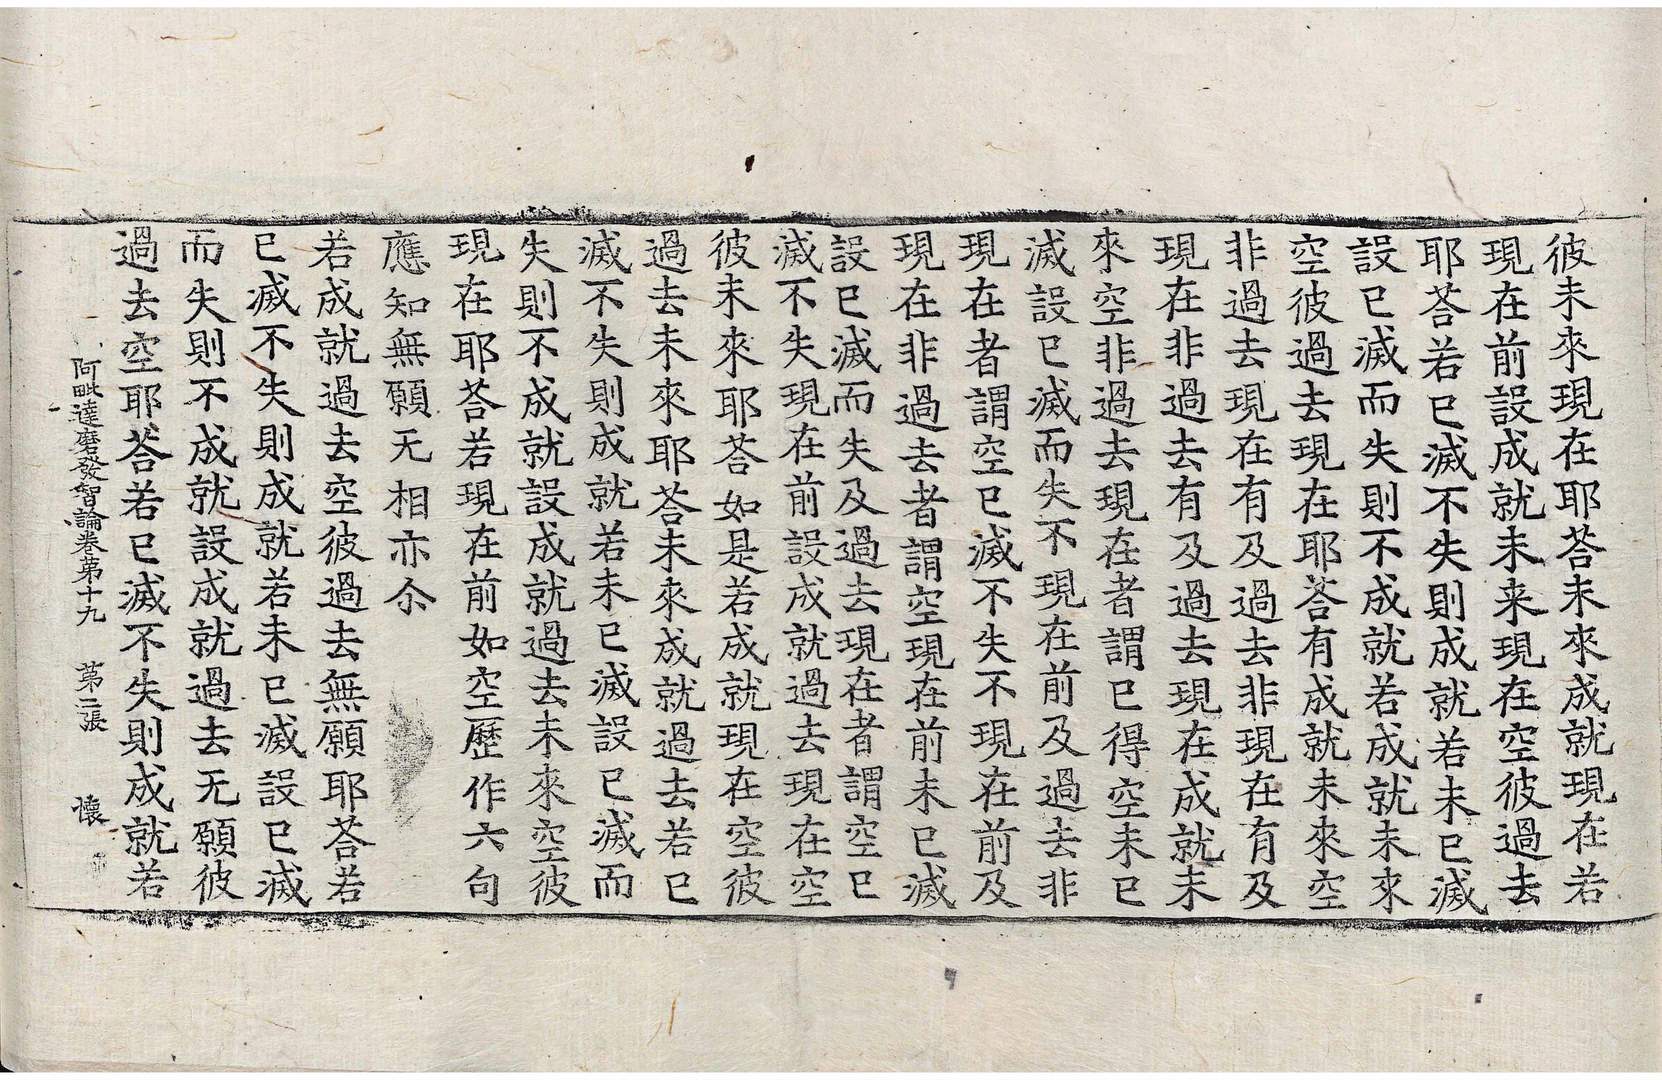 彼未來現在耶荅未來成就現在若
現在前設成就未来現在空彼過去
耶荅若已滅不失則成就若未已滅
設已滅而失則不成就若成就未來
空彼過去現在耶荅有成就未來空
非過去現在有及過去非現在有及
現在非過去有及過去現在成就未
來空非過去現在者謂已得空未已
滅設已滅而失不現在前及過去非
現在者謂空已滅不失不現在前及
現在非過去者謂空現在前未已滅
設已滅而失及過去現在者謂空已
滅不失現在前設成就過去現在空
彼未來耶荅如是若成就現在空彼
過去未來耶荅未來成就過去若已
滅不失則成就若未已滅設已滅而
失則不成就設成就過去未來空彼
現在耶荅若現在前如空歷作六句
應知無願无相亦尒
若成就過去空彼過去無願耶荅若
已滅不失則成就若未已滅設已滅
而失則不成就設成就過去无願彼
過去空耶荅若已滅不失則成就若
阿毗達磨發智論卷第十九　第二張　懷